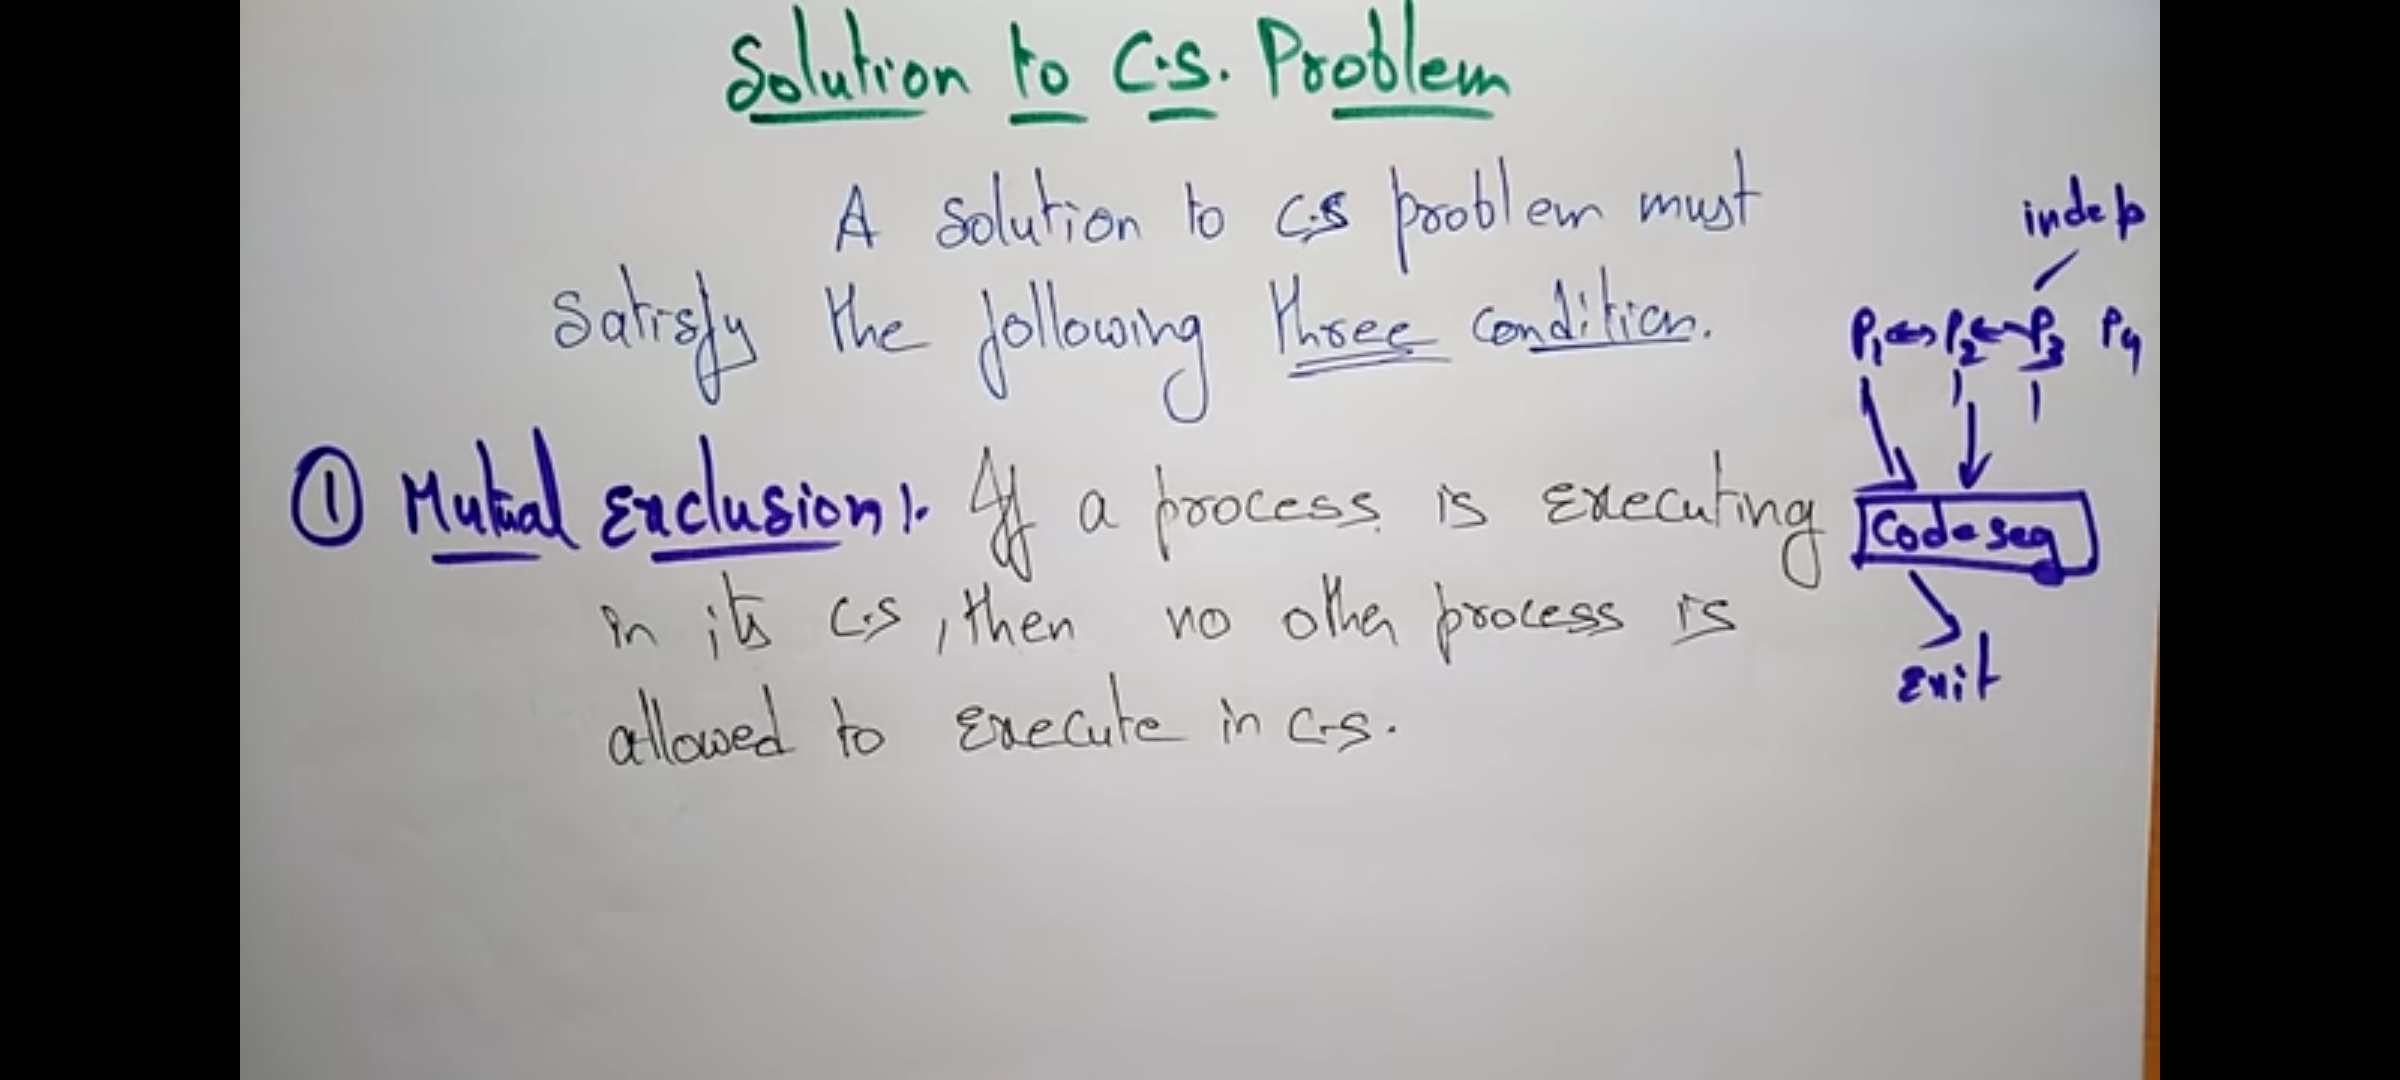 Solution to C.S. Problem
A solution to C.S problem must
satisfy the following three condition.
① Mutual Exclusion :- If a process is executing
in its C.S, then no other process is
allowed to execute in C.S.
indep
P1 ↔ P2 ↔ P3 P4
Code Seg
Exit